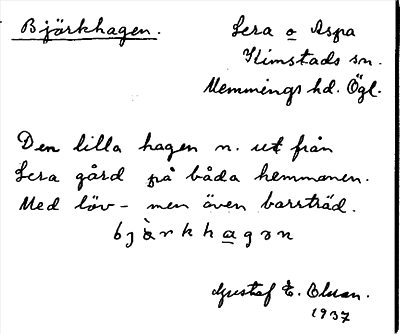 Björkhagen.
Lera o Aspa
Östads sn.
Memmings hd. Ögl.
Den lilla hagen n. ut från
Lera gård på båda hemmanen.
Med löv- men även barrträd.
bjàrkhagən
Gustaf E. Olsson.
1937